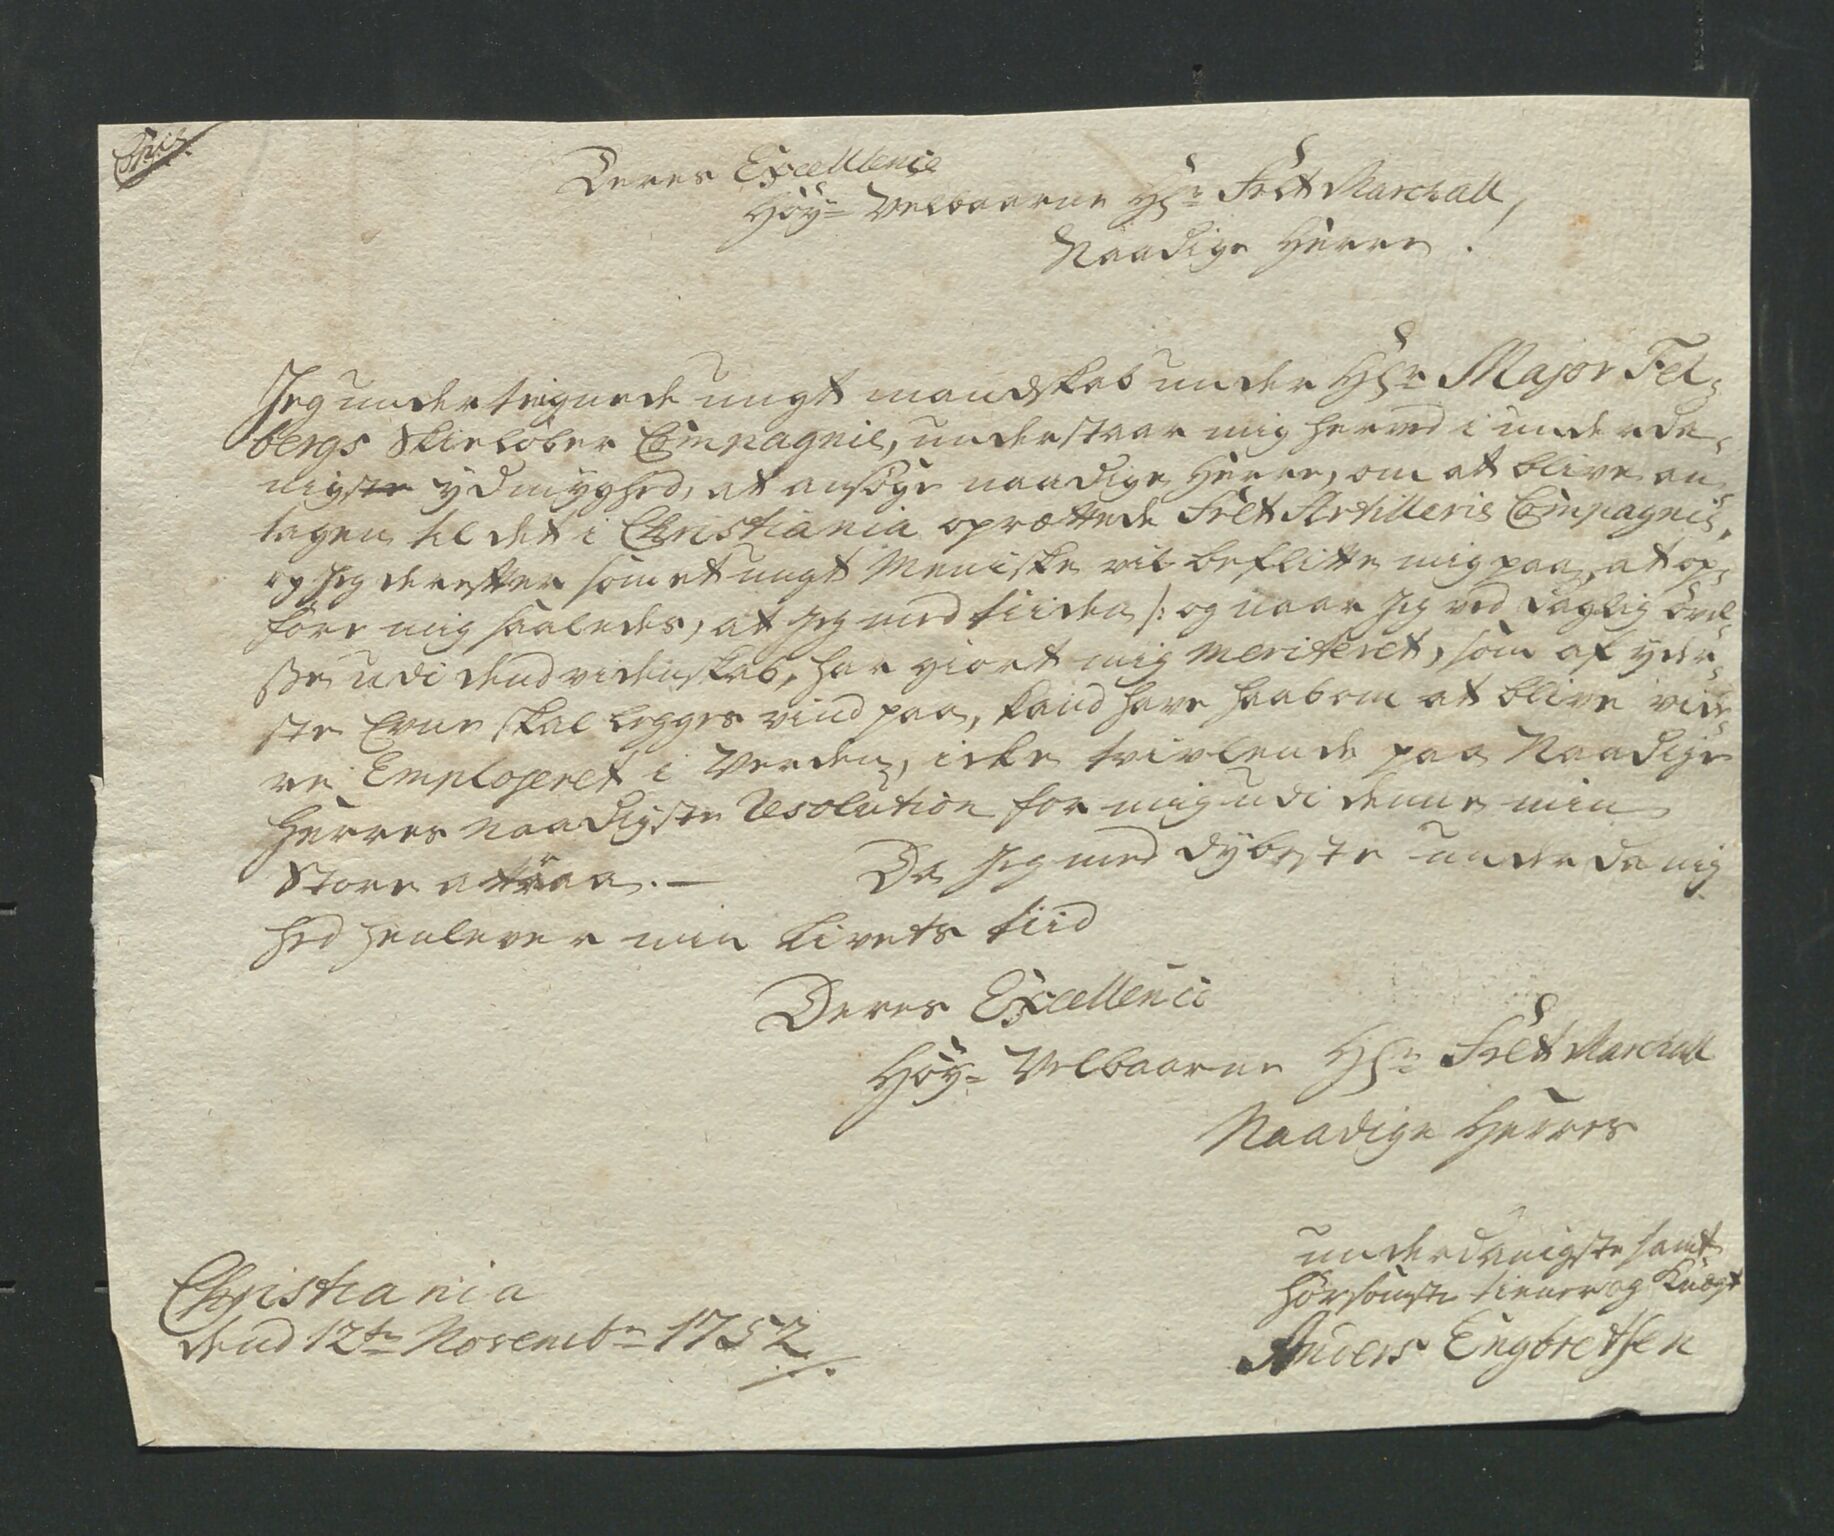 Deres Excellence
Höy= Velbaarne Hr: Felt Marchall,
Naadige Herre!
Jeg underteignede ungt mandskab under Hr: Major Fel-
bergs Skielöber Compagnie, understaar mig herved i underda-
nigste ydmyghed, at ansöge naadige Herre, om at blive an-
tagen til det i Christiania oprættede Felt Artilleris Compagnie,
og Jeg derefter som et ungt Meniske vil beflitte mig paa, at op-
före mig saaledes, at Jeg med tiiden /: og naar Jeg ved daglig övel-
sse udi dend videnskab, har giort mig meriteret, som af yder-
ste Evne skal legges vind paa, kand have haab om at blive vide-
re Emplojeret i Verden, icke tvivlende paa Naadige
Herres naadigste Resolution for mig udi denne min
Store attraa. — De Jeg med dybeste underdanig
hed henlever min Livets tiid
Deres Excellence
Höy= Velbaarne Hr: Felt Marchall
Naadige Herres
underdanigste samt
hörsomste tiener og Knegt
Anders Engbretsen
Christiania
dend 12te Novembr 1752